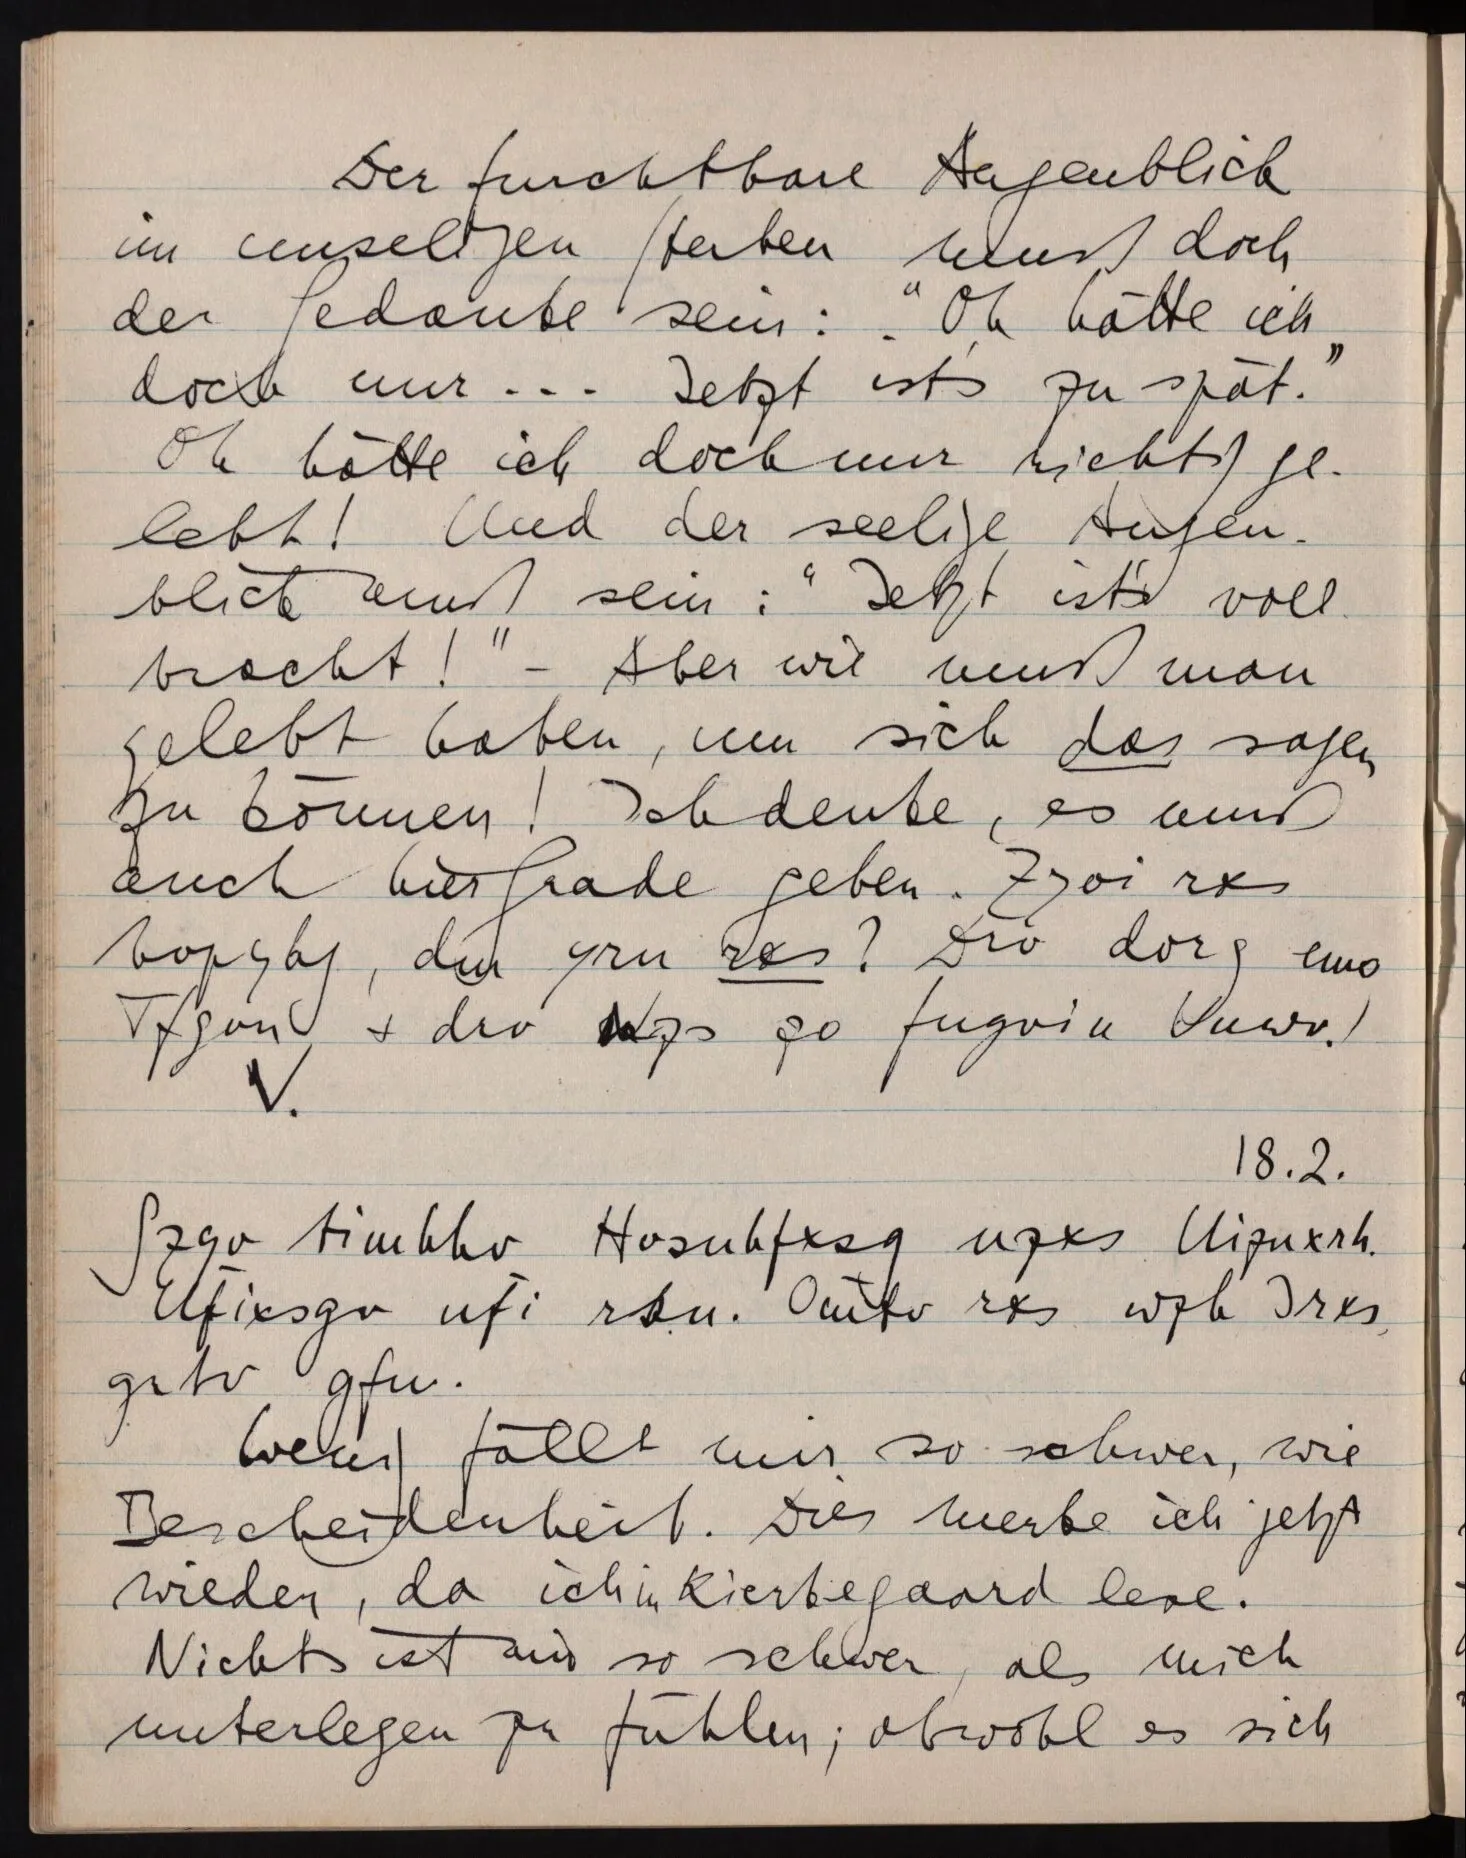 Der furchtbare Augenblick
im unseligen Sterben muß doch
der Gedanke sein: "Oh hätte ich
doch nur... Jetzt ist's zu spät."
Oh hätte ich doch nur richtig ge-
lebt! Und der seelige Augen-
blick muß sein: "Jetzt ist's voll
bracht!" – Aber wie muß man
gelebt haben, um sich das sagen
zu können! Ich denke, es muß
auch hier Grade geben. Zyvi rxs
hvpyhg, dm yrn rxs? Drv dvrg emo
Tfgvn & drv nzs zo fngvin Vnwv!
V.
18.2.
Szyv timhhv Hvsnhfxsg nzxs Uiznxrh.
Ufixsgv ufi rsn. Omtv rxs wzh Irxs-
grtv gfn.
Weniges fällt mir so schwer, wie
Bescheidenheit. Dies merke ich jetzt
wieder, da ich in Kierkegaard lese.
Nichts ist mir so schwer, als mich
unterlegen zu fühlen; obwohl es sich